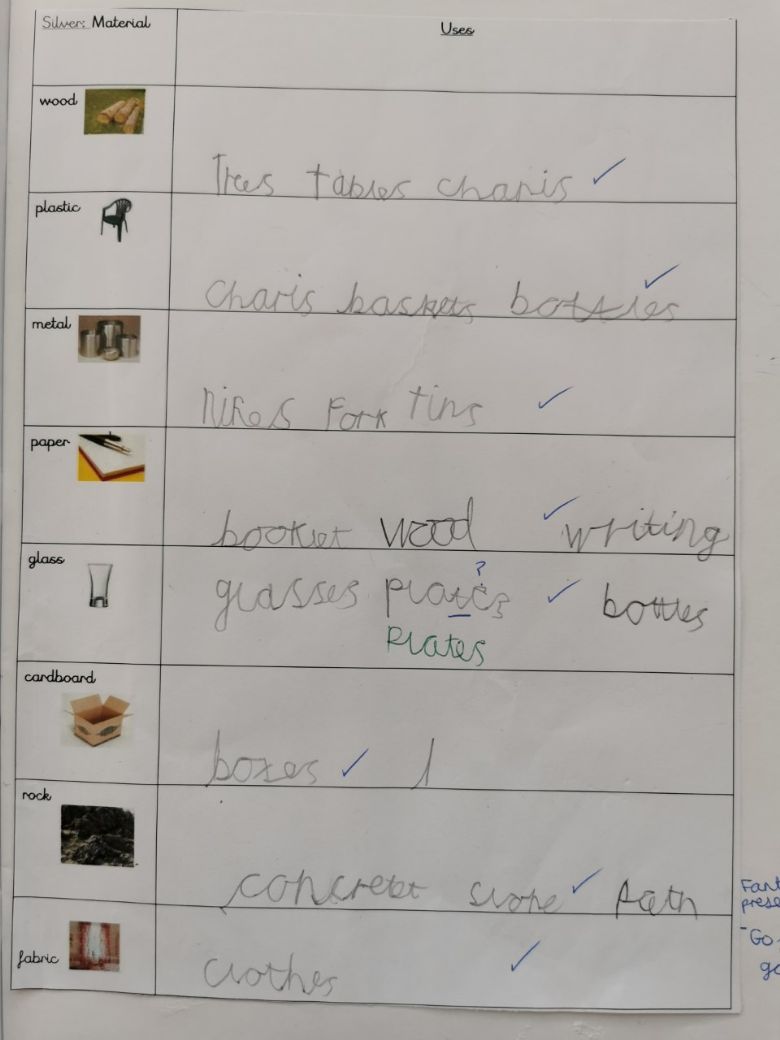 Silver: Material Uses
wood
Trees tables charis
plastic
charis baskets bottles
metal
Nikes Fork tins
paper
booklet wood writing
glass
glasses ?
bottles
Plates
cardboard
boxes
rock
path
fabric
clothes
Fant
prese
-Go
go